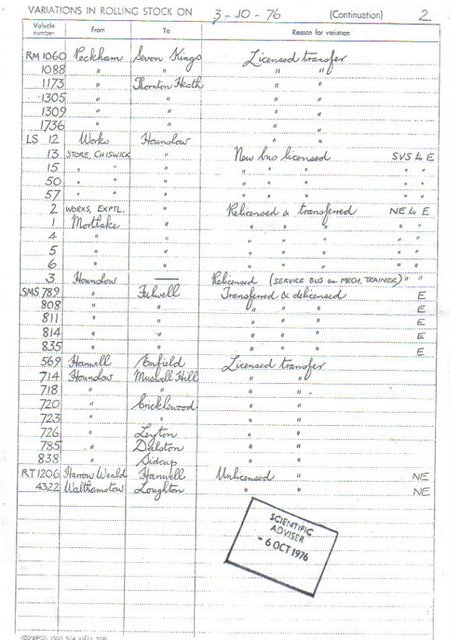 VARIATIONS IN ROLLING STOCK ON 3-10-76 (Continuation) 2
Vehicle number From To Reason for variation
RM 1060 Peckham Seven Kings Licensed transfer
1088 " " " "
1173 " Thornton Heath " "
1305 " " " "
1309 " " " "
1736 " " " "
LS 12 Works Hounslow " "
13 STORE, CHISWICK " New bus licensed SVS to E
15 " " " " " " " "
50 " " " " " " " "
57 " " " " " " " "
2 WORKS, EXPTL. " Relicensed & transferred NE to E
1 Mortlake " " " " " "
4 " " " " " " "
5 " " " " " " "
6 " " " " " " "
3 Hounslow — Relicensed (SERVICE BUS ex MECH. TRAINER) " "
SMS 789 " Fulwell Transferred & delicensed E
808 " " " " " E
811 " " " " " E
814 " " " " " E
835 " " " " " E
569 Hanwell Enfield Licensed transfer
714 Hounslow Muswell Hill " "
718 " " " "
720 " Cricklewood " "
723 " " " "
726 " Leyton " "
785 " Dalston " "
838 " Sidcup " "
RT 1206 Harrow Weald Hanwell Unlicensed " NE
4322 Walthamstow Loughton " " NE
SCIENTIFIC
ADVISER
- 6 OCT 1976